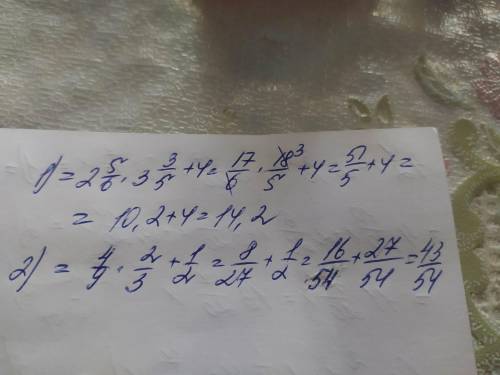 1) = 2 5/6 · 3 3/5 + 4 = 17/6 · 18³/5 + 4 = 51/5 + 4 =
= 10,2 + 4 = 14,2
2) = 4/9 · 2/3 + 1/2 = 8/27 + 1/2 = 16/54 + 27/54 = 43/54